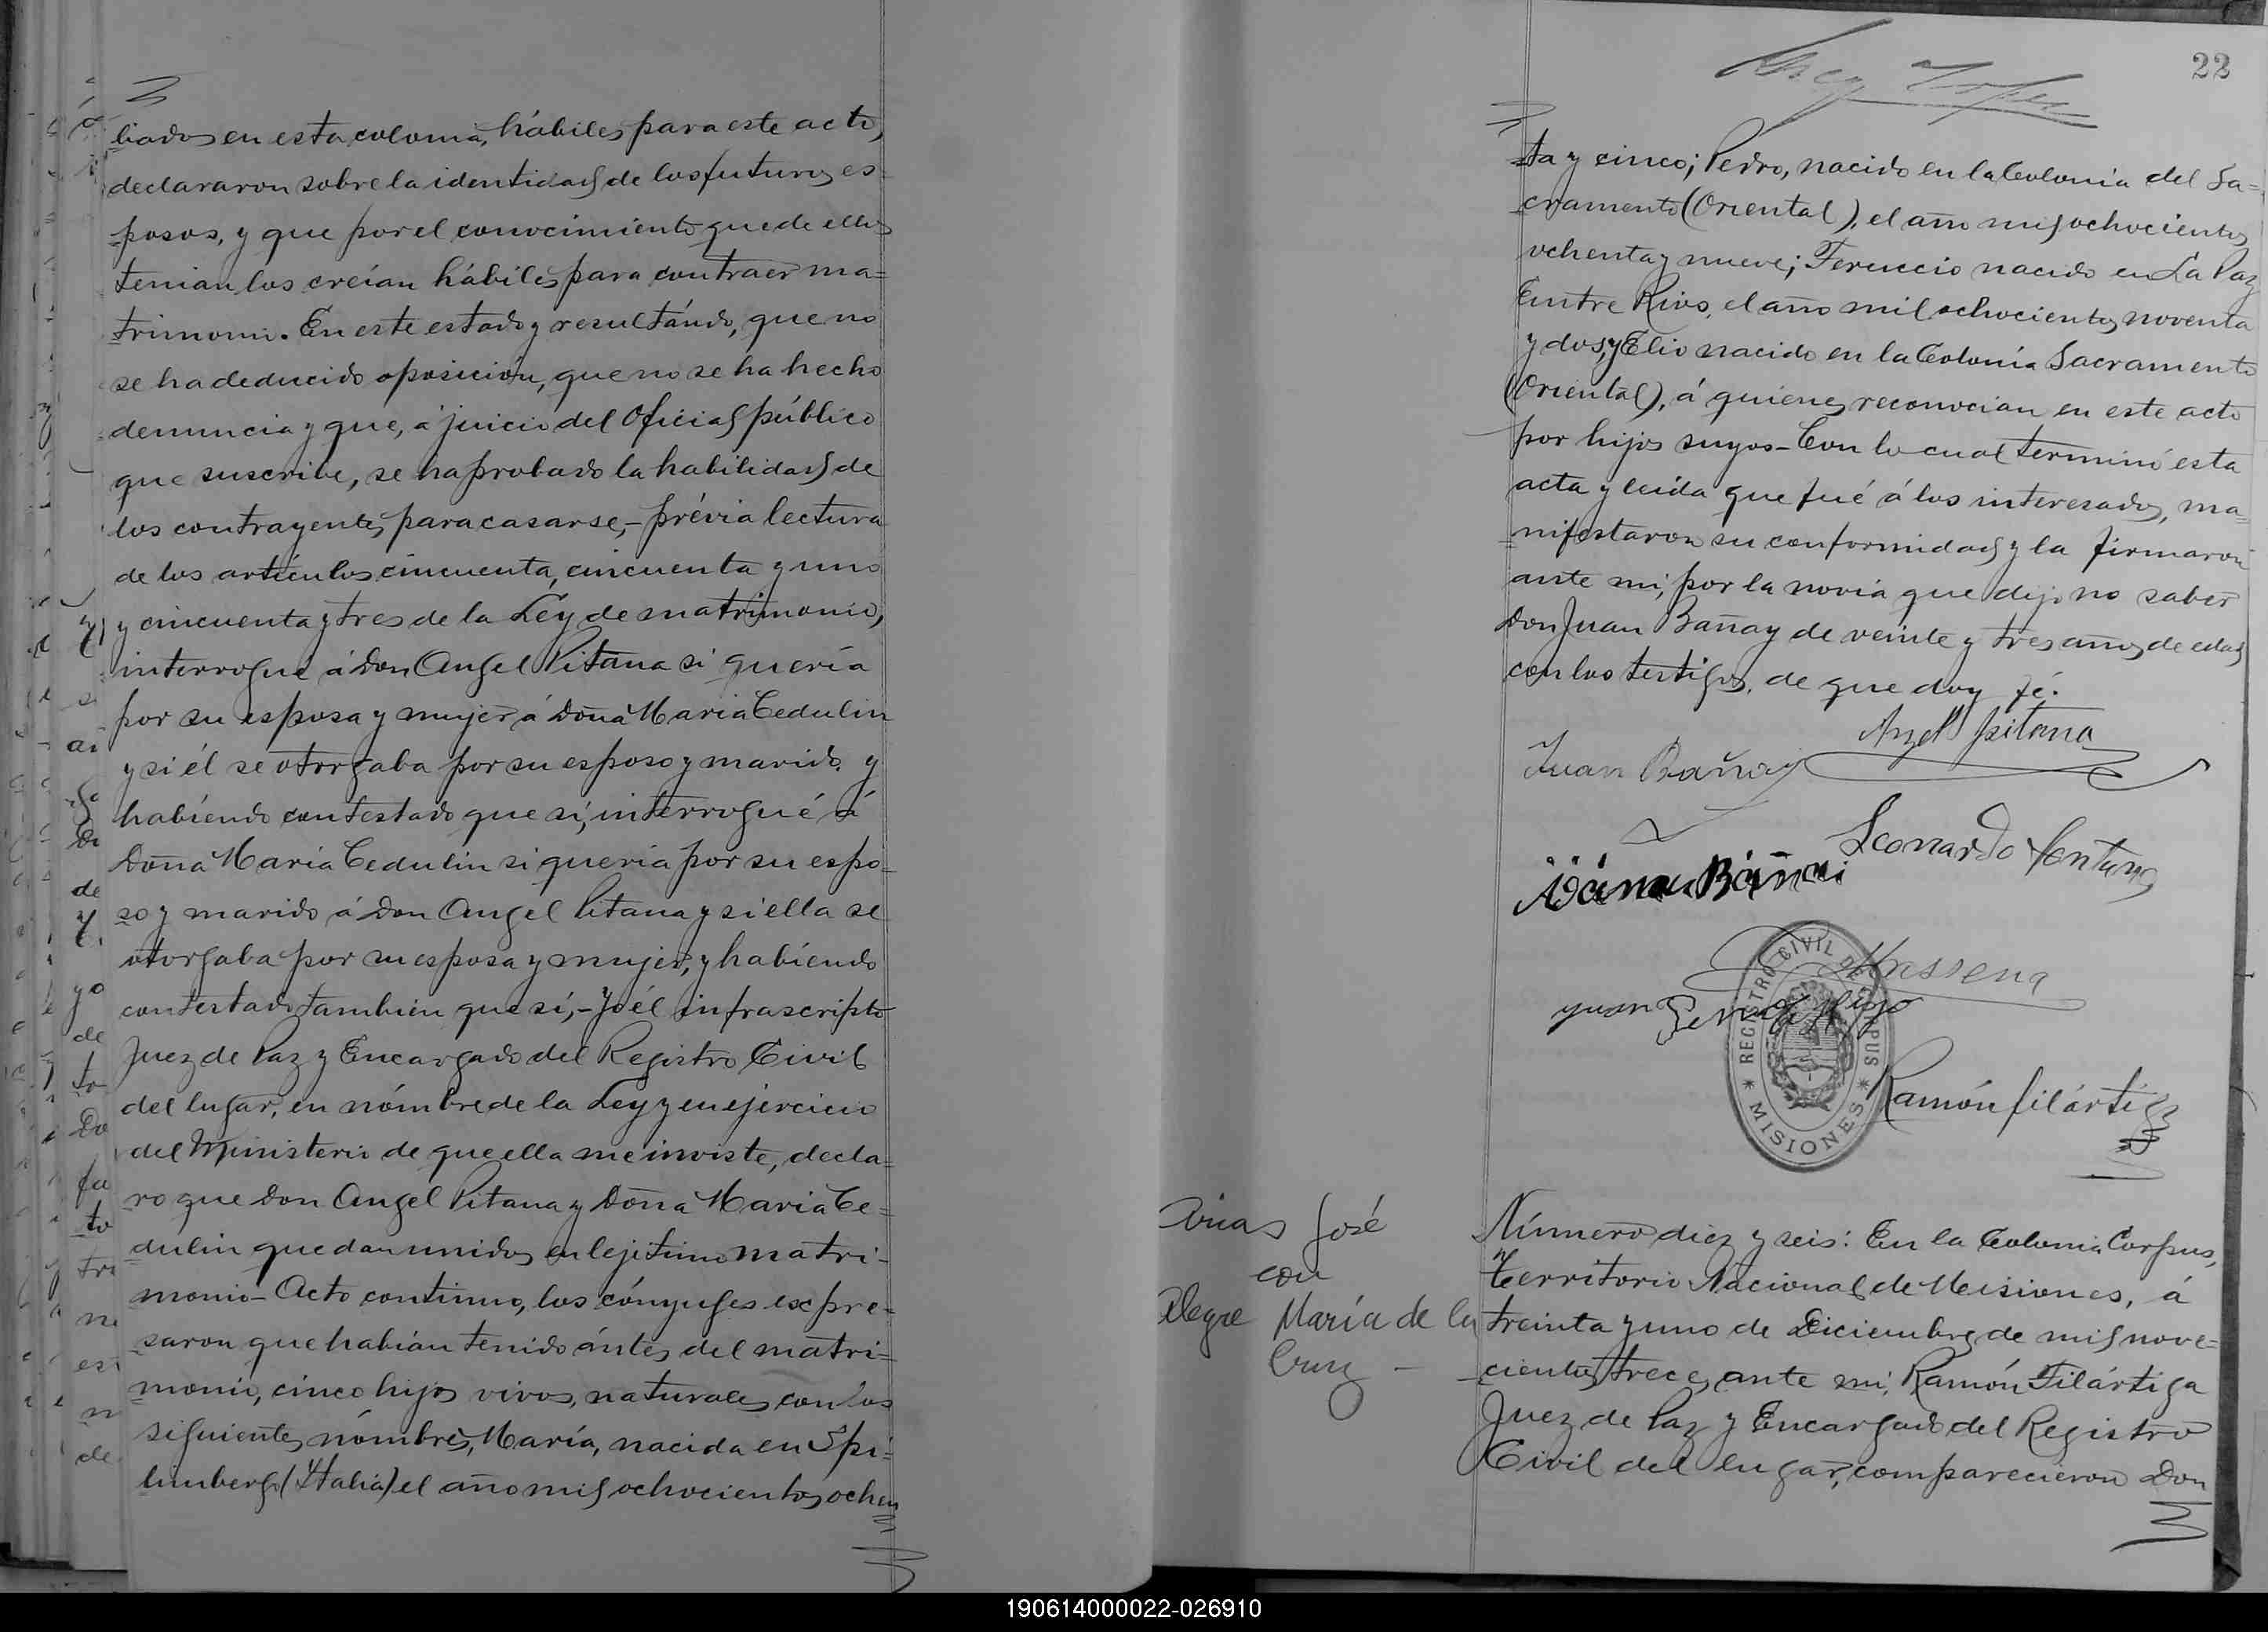 liados en esta colonia, hábiles para este acto,
declararon sobre la identidad de los futuros es-
posos, y que por el conocimiento que de ellos
tenian los creían hábiles para contraer ma=
trimonio. En este estado y resultándo, que no
se ha deducido oposición, que no se ha hecho
denuncia y que, á juicio del Oficial público
que suscribe, se ha probado la habilidad de
los contrayentes para casarse,- prévia lectura
de los artículos cincuenta, cincuenta y uno
y cincuenta y tres de la Ley de matrimonio,
interrogué á Don Angel Pitana si quería
por su esposa y mujer á Doña Maria Cedulin
y si él se otorgaba por su esposo y marido y
habíendo contestado que sí, interrogué á
Doña Maria Cedulin si queria por su espo-
so y marido á Don Angel Pitana y si ella se
otorgaba por su esposa y mujer, y habíendo
contestado tambien que sí,- Yo él infrascripto
Juez de Paz y Encargado del Registro Civil
del lugar, en nómbre de la Ley y en ejercicio
del Ministerio de que ella me inviste, decla=
ro que Don Angel Pitana y Doña Maria Ce=
dulin quedan unidos en lejítimo matri-
monio- Acto continuo, los cónyuges expre=
saron que habían tenido ántes del matri=
monio, cinco hijos vivos, naturales con los
siguientes nómbres, María, nacida en Spi-
limbergo (Ytalia) el año mil ochocientos ochen
22
ta y cinco; Pedro, nacido en la Colonia del Sa=
cramento (Oriental), el año mil ochocientos
ochenta y nueve; Feruccio nacido en La Paz
Entre Rios, el año mil ochocientos noventa
y dos, y Elio nacido en la Colonia Sacramento
(Oriental), á quienes reconocian en este acto
por hijos suyos- Con lo cual terminó esta
acta y leída que fué á los interesados, ma=
nifestaron su conformidad y la firmaron
ante mi, por la novia que dijo no saber
Don Juan Bañay de veinte y tres años de edad
con los testigos, de que doy fé.
Angel Pitana
Juan Bañay
Leonardo
REGISTRO CIVIL DE CORPUS
* MISIONES *
Massena
Juan Hijo
Ramón Filártiga
Arias José
con
Alegre María de la
Cruz -
Número diez y seis: En la Colonia Corpus,
Territorio Nacional de Misiones, á
treinta y uno de Diciembre de mil nove-
cientos trece, ante mi, Ramón Filártiga
Juez de Paz y Encargado del Registro
Civil del lugar, comparecieron Don
190614000022-026910